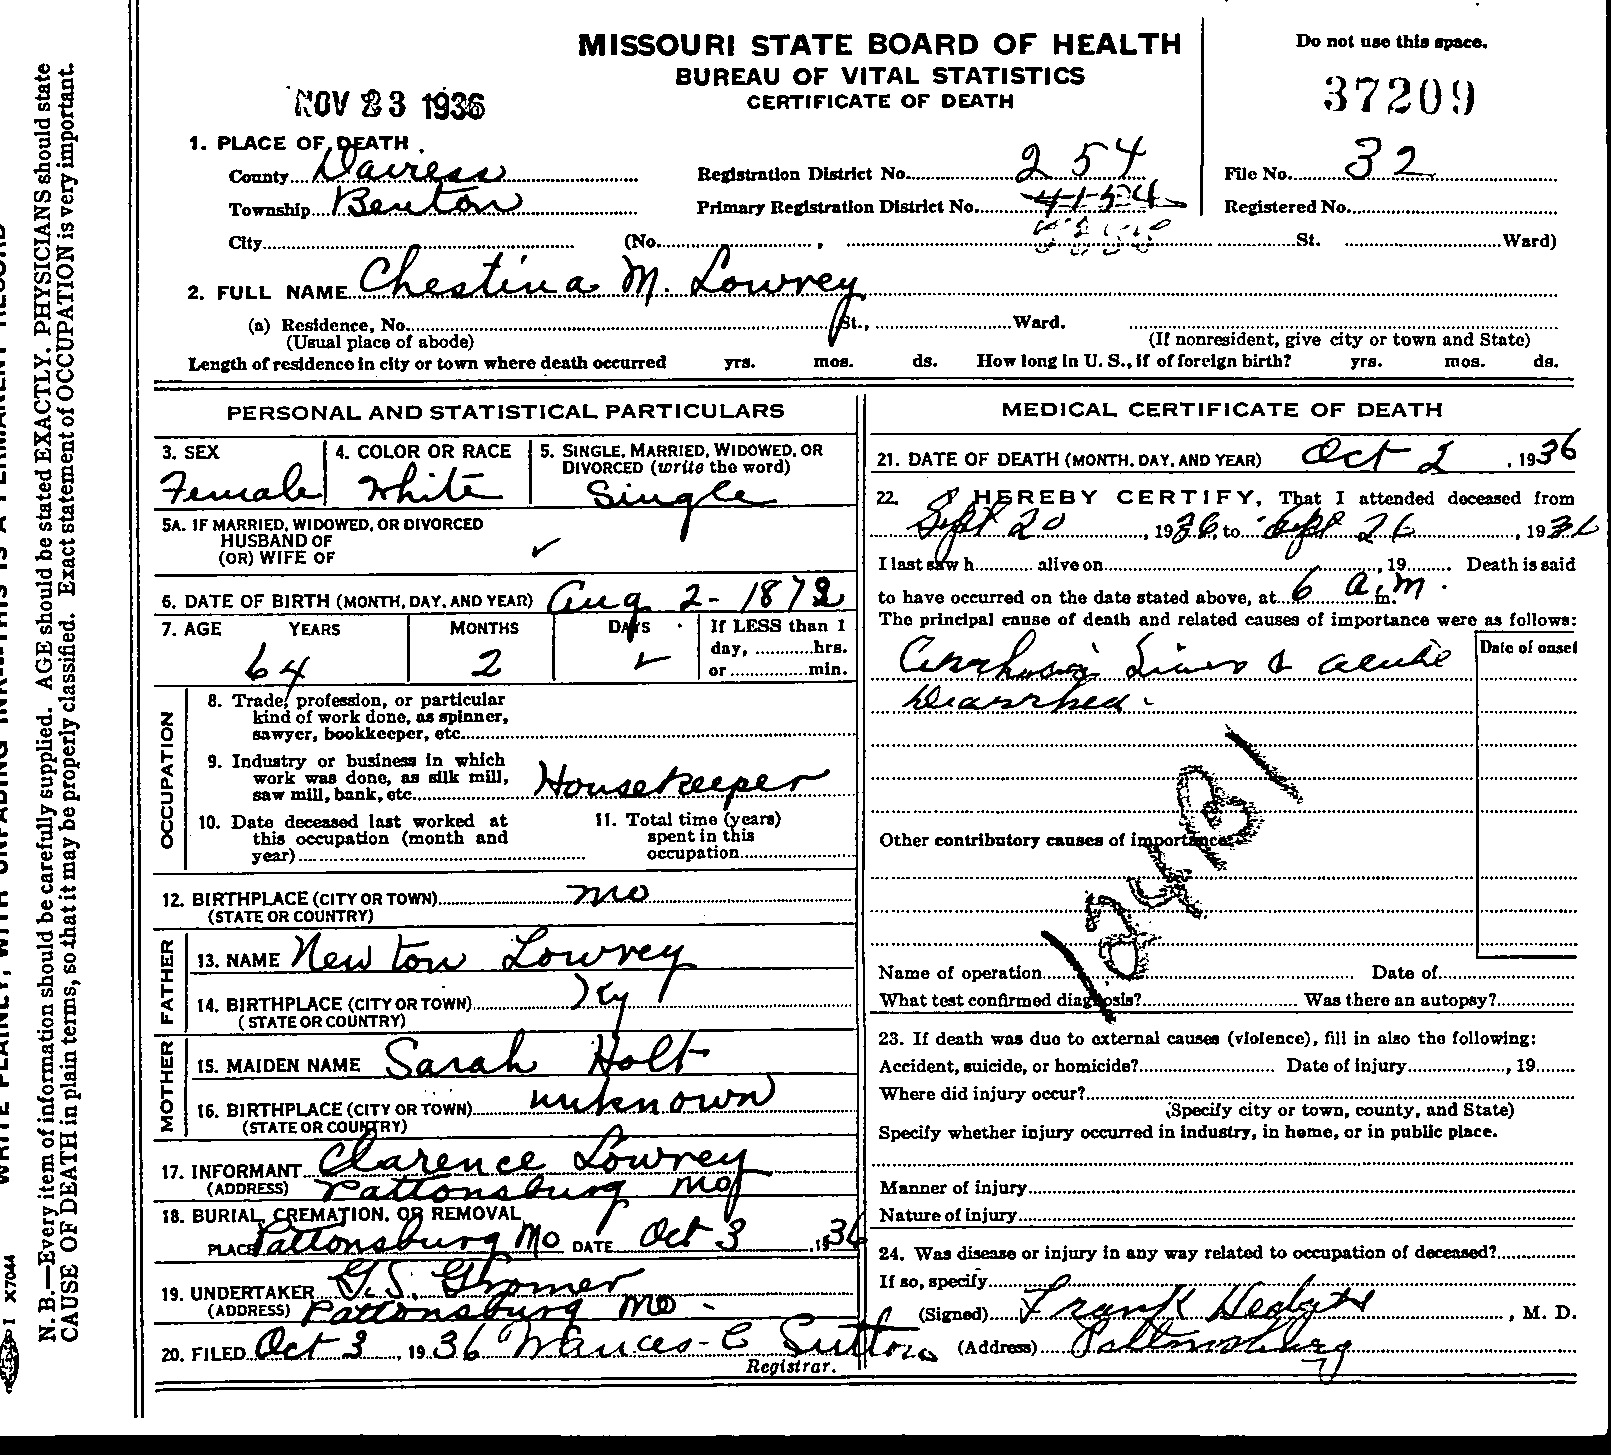 MISSOURI STATE BOARD OF HEALTH
BUREAU OF VITAL STATISTICS
CERTIFICATE OF DEATH
Do not use this space.
NOV 23 1936
37209
1. PLACE OF DEATH
County Daviess
Registration District No. 254
File No. 32
Township Benton
Primary Registration District No. 4154
Registered No.
City (No. , St. Ward)
2. FULL NAME Chestina M. Lowrey
(a) Residence, No. St., Ward.
(Usual place of abode) (If nonresident, give city or town and State)
Length of residence in city or town where death occurred yrs. mos. ds. How long in U. S., if of foreign birth? yrs. mos. ds.
PERSONAL AND STATISTICAL PARTICULARS
3. SEX 4. COLOR OR RACE 5. SINGLE, MARRIED, WIDOWED, OR
DIVORCED (write the word)
Female White Single
5A. IF MARRIED, WIDOWED, OR DIVORCED
HUSBAND OF
(OR) WIFE OF
6. DATE OF BIRTH (MONTH, DAY, AND YEAR) Aug 2- 1872
7. AGE YEARS MONTHS DAYS If LESS than 1
day, hrs.
or min.
64 2
OCCUPATION
8. Trade, profession, or particular
kind of work done, as spinner,
sawyer, bookkeeper, etc.
9. Industry or business in which
work was done, as silk mill,
saw mill, bank, etc. Housekeeper
10. Date deceased last worked at
this occupation (month and
year)
11. Total time (years)
spent in this
occupation
12. BIRTHPLACE (CITY OR TOWN) Mo
(STATE OR COUNTRY)
FATHER
13. NAME Newton Lowrey
14. BIRTHPLACE (CITY OR TOWN) Ky
(STATE OR COUNTRY)
MOTHER
15. MAIDEN NAME Sarah Holt
16. BIRTHPLACE (CITY OR TOWN) unknown
(STATE OR COUNTRY)
17. INFORMANT Clarence Lowrey
(ADDRESS) Pattonsburg Mo
18. BURIAL, CREMATION, OR REMOVAL
PLACE Pattonsburg Mo DATE Oct 3, 1936
19. UNDERTAKER G.S. Gromer
(ADDRESS) Pattonsburg Mo
20. FILED Oct 3, 1936 E Sutton
Registrar.
MEDICAL CERTIFICATE OF DEATH
21. DATE OF DEATH (MONTH, DAY, AND YEAR) Oct 2, 1936
22. I HEREBY CERTIFY, That I attended deceased from
Sept 20, 1936, to Sept 26, 1936
I last saw h alive on , 19 Death is said
to have occurred on the date stated above, at 6 a.m.
The principal cause of death and related causes of importance were as follows:
Date of onset
Cirrhosis Liver & acute
Diarrhea.
124B1
Other contributory causes of importance:
Name of operation Date of
What test confirmed diagnosis? Was there an autopsy?
23. If death was due to external causes (violence), fill in also the following:
Accident, suicide, or homicide? Date of injury , 19
Where did injury occur?
(Specify city or town, county, and State)
Specify whether injury occurred in industry, in home, or in public place.
Manner of injury
Nature of injury
24. Was disease or injury in any way related to occupation of deceased?
If so, specify
(Signed) Frank Hedges, M. D.
(Address) Pattonsburg
N. B.—Every item of information should be carefully supplied. AGE should be stated EXACTLY. PHYSICIANS should state
CAUSE OF DEATH in plain terms, so that it may be properly classified. Exact statement of OCCUPATION is very important.
X7044